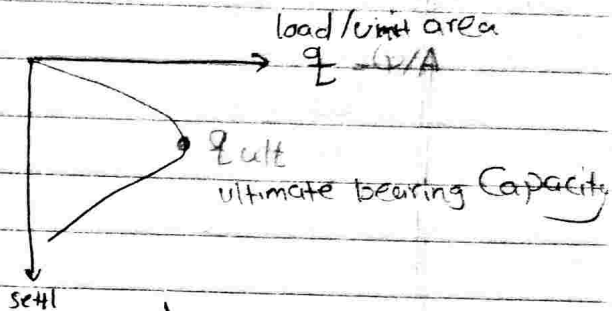 load/unit area
q = Q/A
q ult
ultimate bearing Capacity
settl